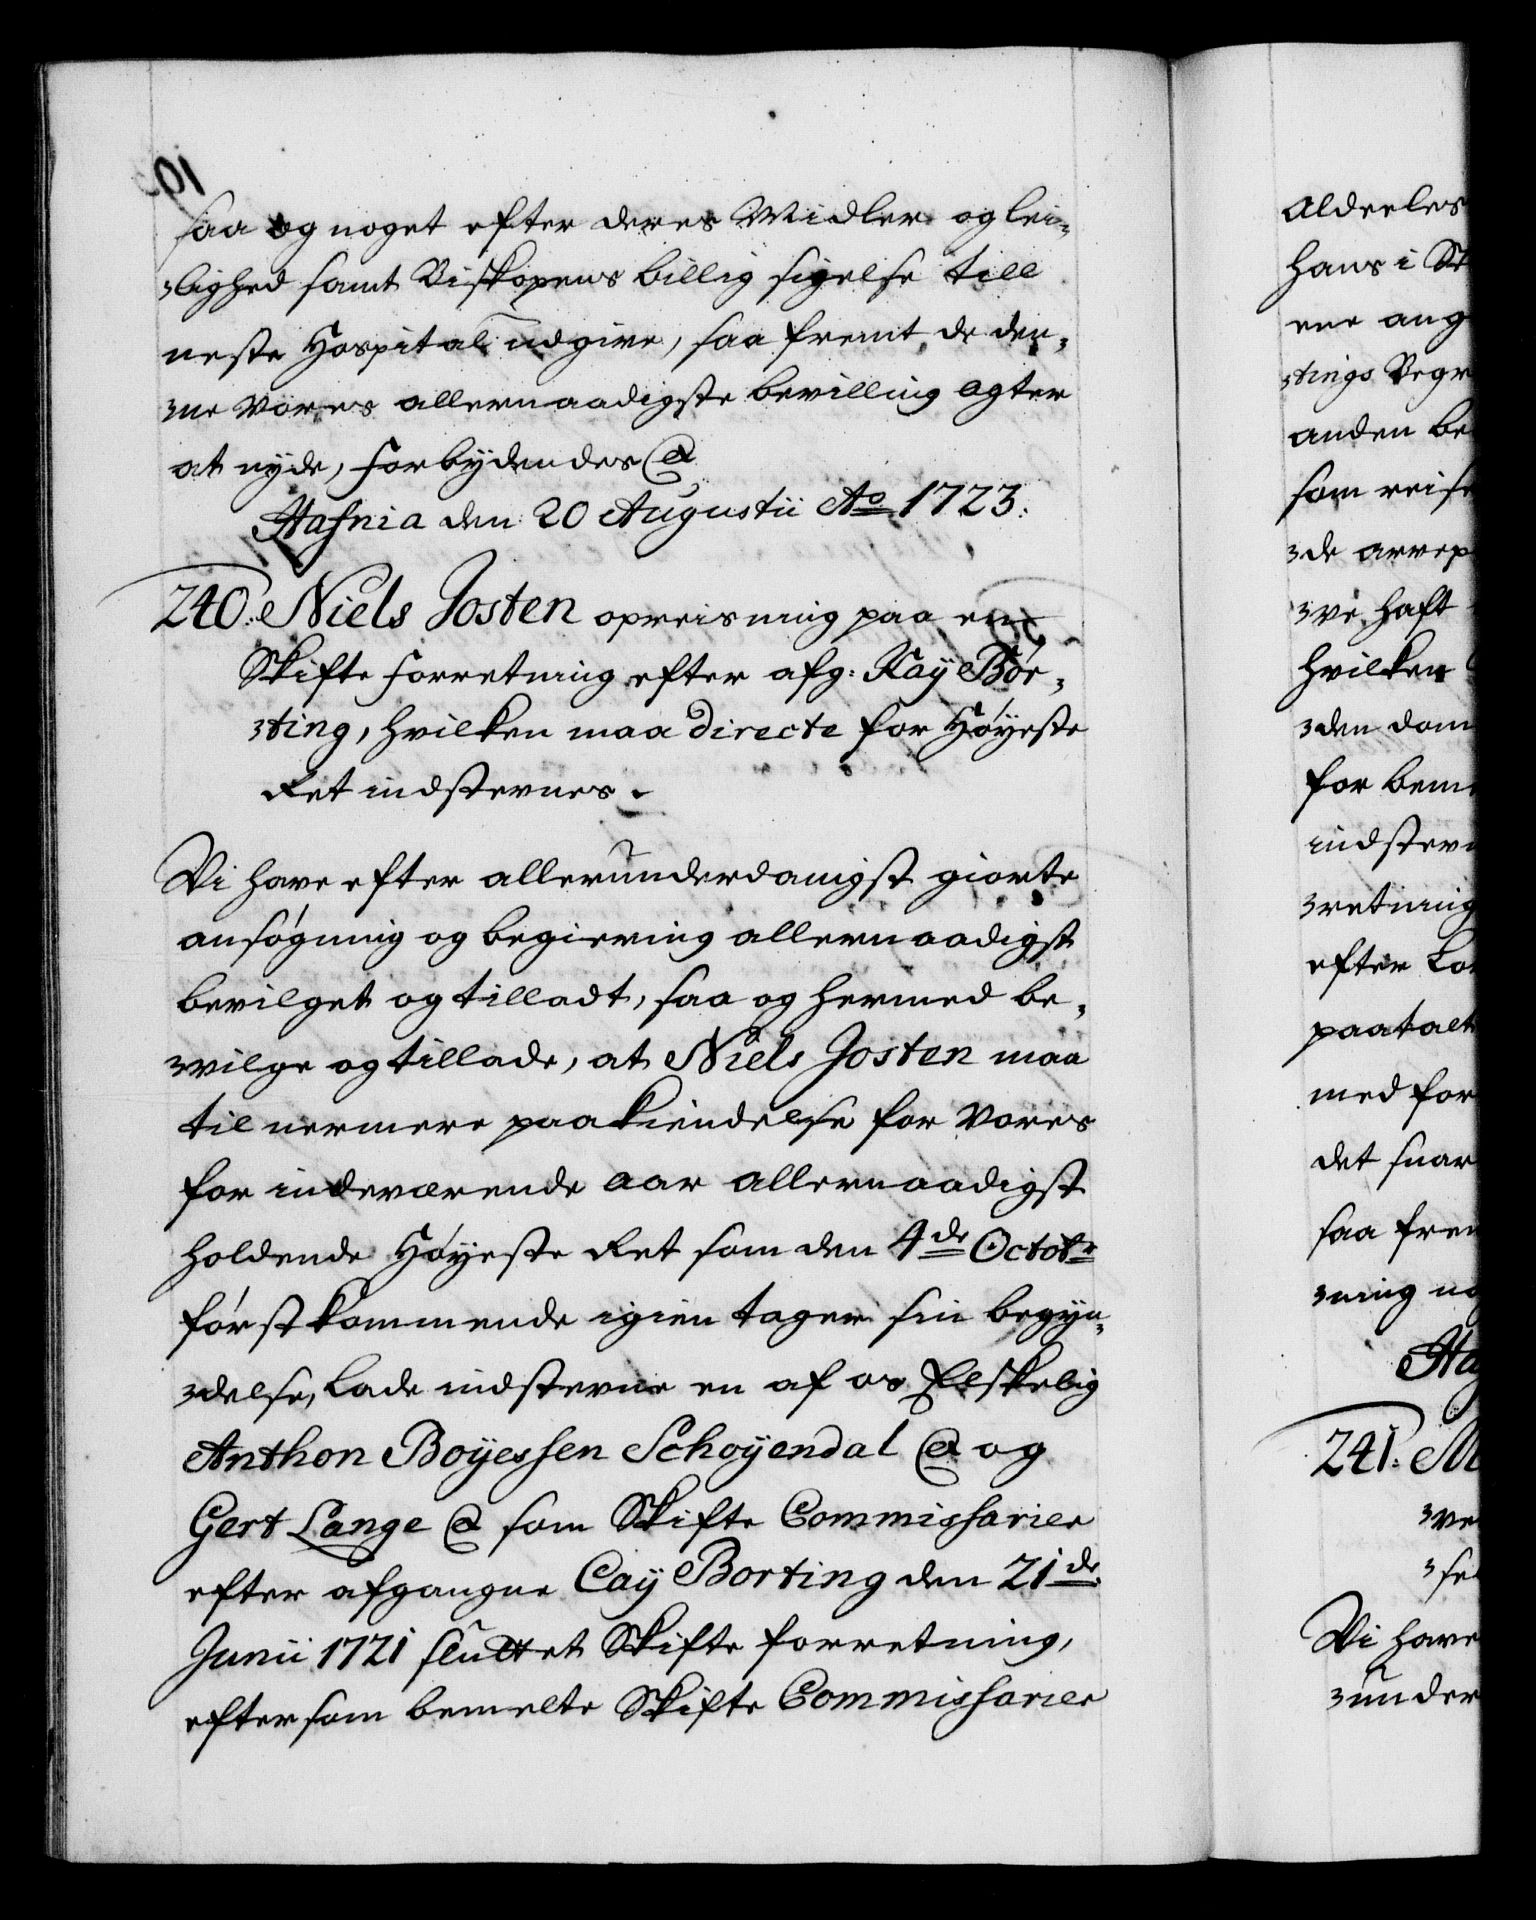 saa og noget efter deres Midler og lei-
-lighed samt Biskopens billig sigelse till
neste Hospital udgive, saa fremt de den-
-ne Vores allernaadigste bevilling agter
at nyde, Forbydendes &
Hafnia den 20 Augustii Ao 1723.
240. Niels Josten opreisning paa en
Skifte Forretning efter afg: Kay Bor-
-ting, hvilken maa directe for Høyeste
Ret indstevnes.
Vi have efter allerunderdanigst giorte
ansøgning og begiering allernaadigst
bevilget og tilladt, saa og hermed be-
-vilge og tillade, at Niels Josten maa
til nermere paakiendelse for Vores
for indeværende aar allernaadigst
holdende Høyeste Ret som den 4de Octobr
først kommende igien tager sin begyn-
-delse, lade indstevne en af os Elskelig
Anthon Boÿessen Schoÿendal & og
Gert Lange & som Skifte Commissarier
efter afgangne Caÿ Borting den 21de
Junii 1721 sluttet Skifte forretning,
eftersom bemelte Skifte Commissarier
aldeeles
hans i
ene ang
-tings Begr
anden be
som reise
-de arrep
-ve haft
hvilken
-den dom
for beme
indstevn
-retning
efter Lo
paatalt
med for
det snar
saa frem
-ning no
Ha
241. M
-ve
-se
Vi have
-under